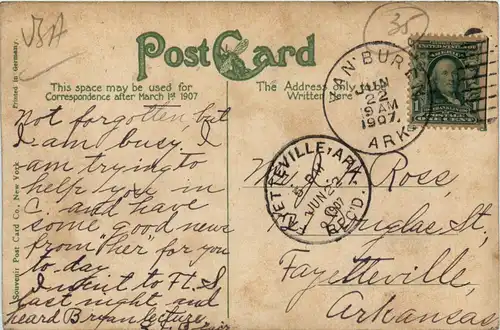 VBA
35
Post Card
This space may be used for
Correspondence after March 1st 1907
The Address only to be
Written Here
Printed in Germany.
Souvenir Post Card Co., New York
VAN BUREN
JUN
22
9 AM
1907.
ARK.
FAYETTEVILLE, ARK.
JUN 22
1907
REC'D.
Not forgotten but
I am busy. I
am trying to
help you in
C. and have
some good news
from "her" for you
to-day.
I went to Ft. S.
last night and
heard Bryan lecture
Ross
Douglas St,
Fayetteville,
Arkansas